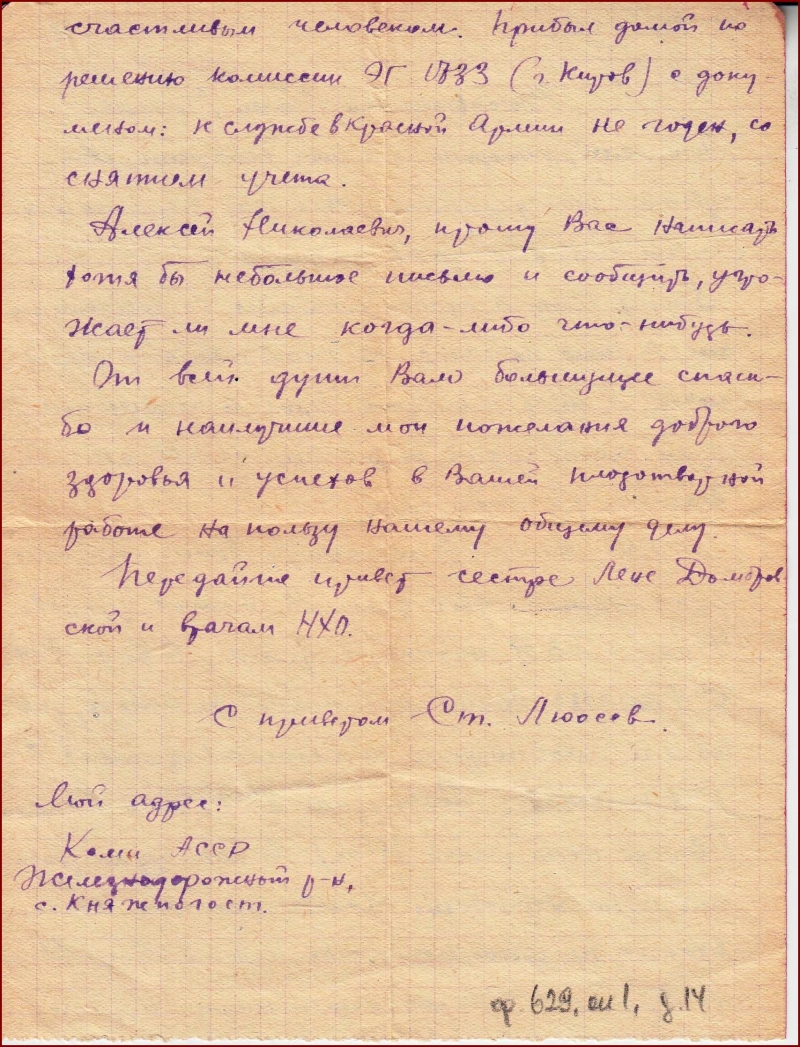 счастливым человеком. Прибыл домой по
решению комиссии ЭГ 1733 (г. Киров) с доку-
ментом: к службе в Красной Армии не годен, со
снятием учета.
Алексей Николаевич, прошу Вас написать
хотя бы небольшое письмо и сообщить, угро-
жает ли мне когда-либо что-нибудь.
От всей души Вам большущее спаси-
бо и наилучшие мои пожелания доброго
здоровья и успехов в Вашей плодотворной
работе на пользу нашему общему делу.
Передайте привет сестре Лене Домбров-
ской и врачам НХО.
С приветом Ст. Люосев.
Мой адрес:
Коми АССР
Железнодорожный р-н,
с. Княжпогост.
ф. 629, оп 1, д. 14